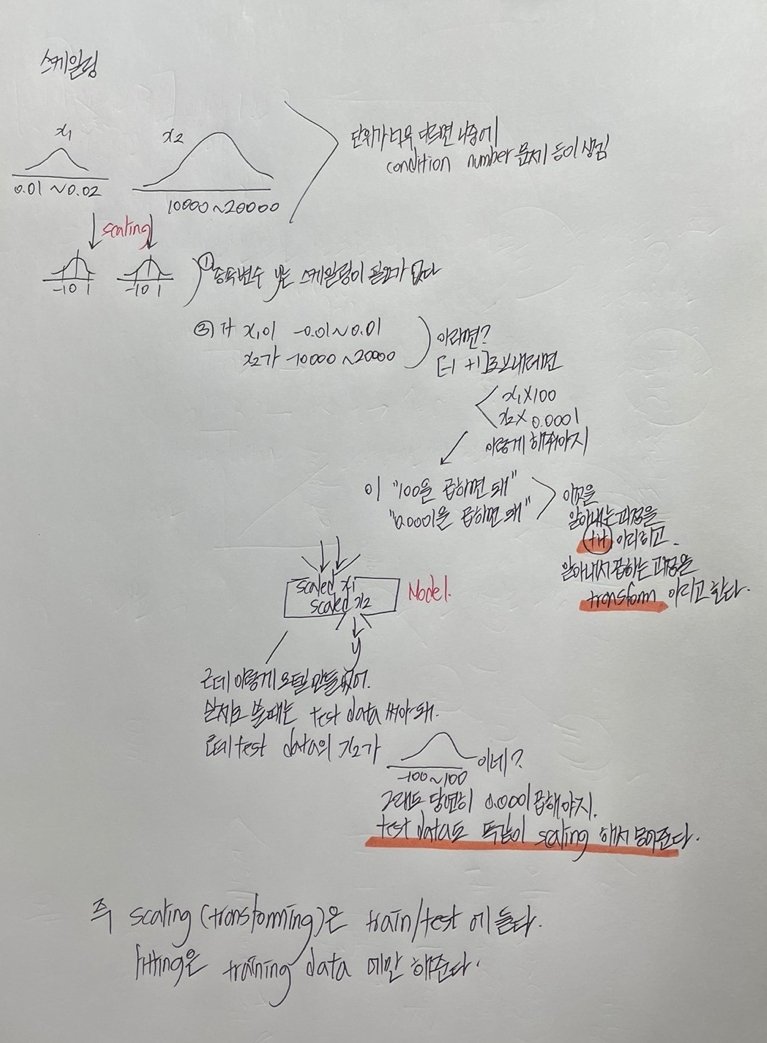 스케일링
x1 x2
0.01 ~ 0.02
10000 ~ 20000
단위가 너무 다르면 나중에
condition number 문제 등이 생김
scaling
-1 0 1 -1 0 1
① 종속변수 y는 스케일링이 필요가 없다
x1이 -0.01 ~ 0.01
x2가 -10000 ~ 20000
이라면?
[-1 +1]로 보내려면
x1 x 100
x2 x 0.0001
이렇게 해줘야지
이 "100을 곱하면 돼"
"0.0001을 곱하면 돼"
이것을
알아내는 과정을
fit 이라하고.
알아내서 곱하는 과정을
transform 이라고 한다.
scaled x1
scaled x2
Model.
y
근데 이렇게 모델 만들었어.
실제로 쓸때는 test data 써야돼.
근데 test data의 x2가
-100 ~ 100
이네?
그래도 당연히 0.0001 곱해야지.
test data도 똑같이 scaling 해서 넣어준다.
즉 scaling (transforming)은 train/test 에 둘다.
fitting은 training data 에만 해준다.